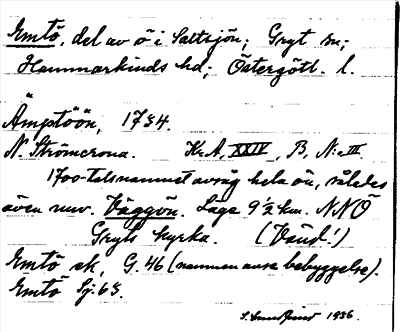 Emtö, del av ö i Saltsjön; Gryt sn;
Hammarkinds hd; Östergötl. l.
Ämptöön, 1734.
N Strömcrona. Kr.A, XXIV, B, N:o III.
1700-talsnamnet avsåg hela ön, således
även nuv. Väggön. Läge 9½ km. NNÖ
Gryts kyrka. (Vänd!)
Emtö ek, G. 46 (namnen avse bebyggelse).
Emtö Sj. 63.
1936.